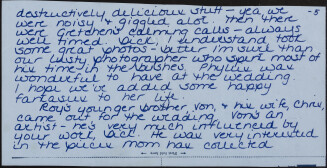 destructively delicious stuff - yea we -5
were noisy & giggled alot. Then there
were Gretchen's calming calls - always
well timed. Jack, I understand took
some great photos - better I'm sure than
our lusty photographer who spent most of
his time in the bushes. Phyllis was
wonderful to have at the wedding.
I hope we've added some happy
fantasies to her life.
Roy's younger brother Von, & his wife, Chris,
came out for the wedding. Von's an
artist - he's very much influenced by
your work, Jack. He was very interested
in the pieces mom has collected